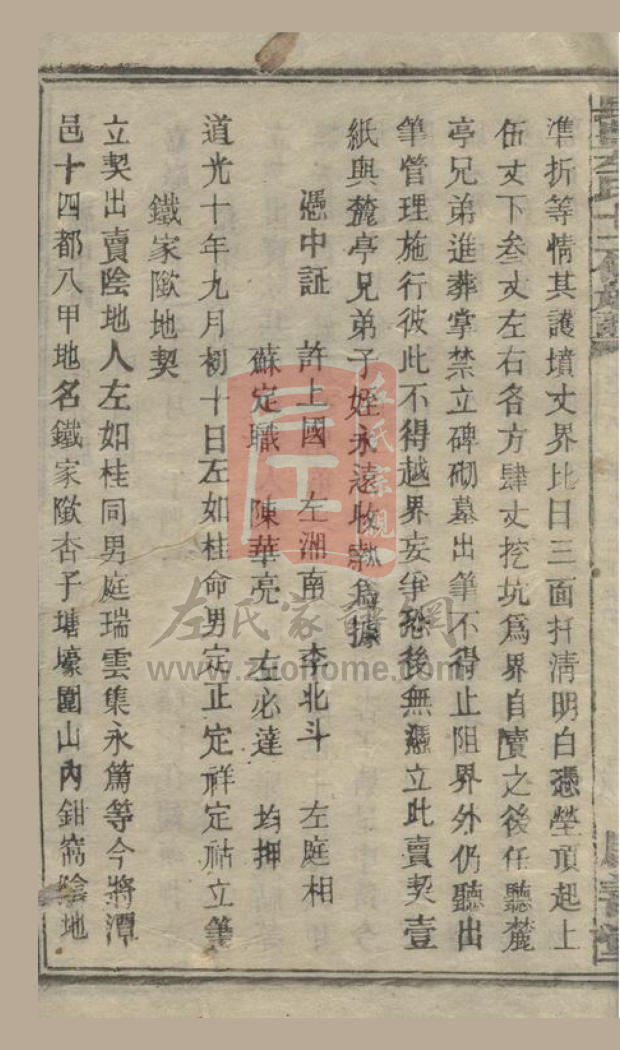 準折等情其護墳丈界比日三面扦清明白憑塋頂起上
伍丈下叁丈左右各方肆丈挖坑爲界自賣之後任聽麓
亭兄弟進葬掌禁立碑砌墓出筆不得止阻界外仍聽出
筆管理施行彼此不得越界妄爭恐後無憑立此賣契壹
紙與麓亭兄弟子姪永遠收執爲據
憑中証 許上國 左湘南 李北斗 左庭相
蘇定職 陳華亮 左必達 均押
道光十年九月初十日左如桂命男定正定祥定祜立筆
鐵家隞地契
立契出賣陰地人左如桂同男庭瑞雲集永篤等今將潭
邑十四都八甲地名鐵家隞杏子塘壕圍山內鉗窩陰地
左氏宗親
左氏家譜網
www.zuohome.com